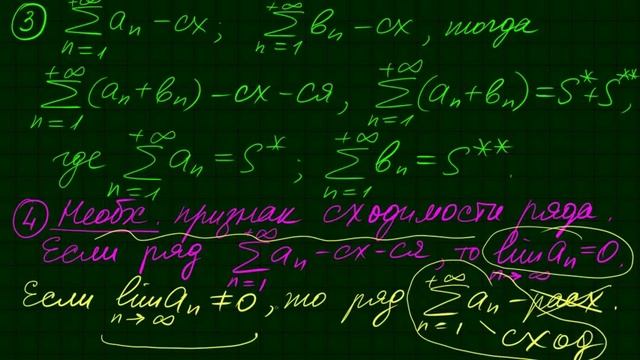 ③ \sum_{n=1}^{+\infty} a_n - сх; \sum_{n=1}^{+\infty} b_n - сх, тогда
\sum_{n=1}^{+\infty} (a_n + b_n) - сх-ся, \sum_{n=1}^{+\infty} (a_n + b_n) = S^* + S^{**},
где \sum_{n=1}^{+\infty} a_n = S^*; \sum_{n=1}^{+\infty} b_n = S^{**}.
④ Необх. признак сходимости ряда.
Если ряд \sum_{n=1}^{+\infty} a_n - сх-ся, то \lim_{n \to \infty} a_n = 0.
Если \lim_{n \to \infty} a_n ≠ 0, то ряд \sum_{n=1}^{+\infty} a_n - расх.
сход